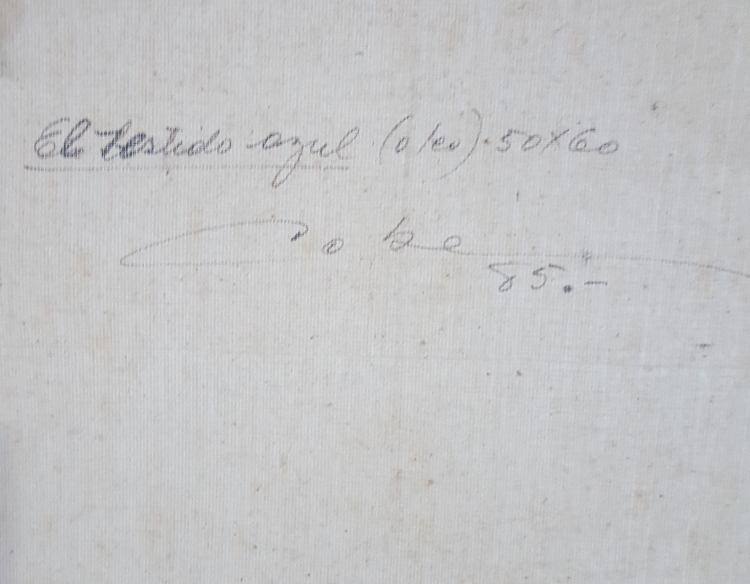 El vestido azul (oleo). 50X60
85.-